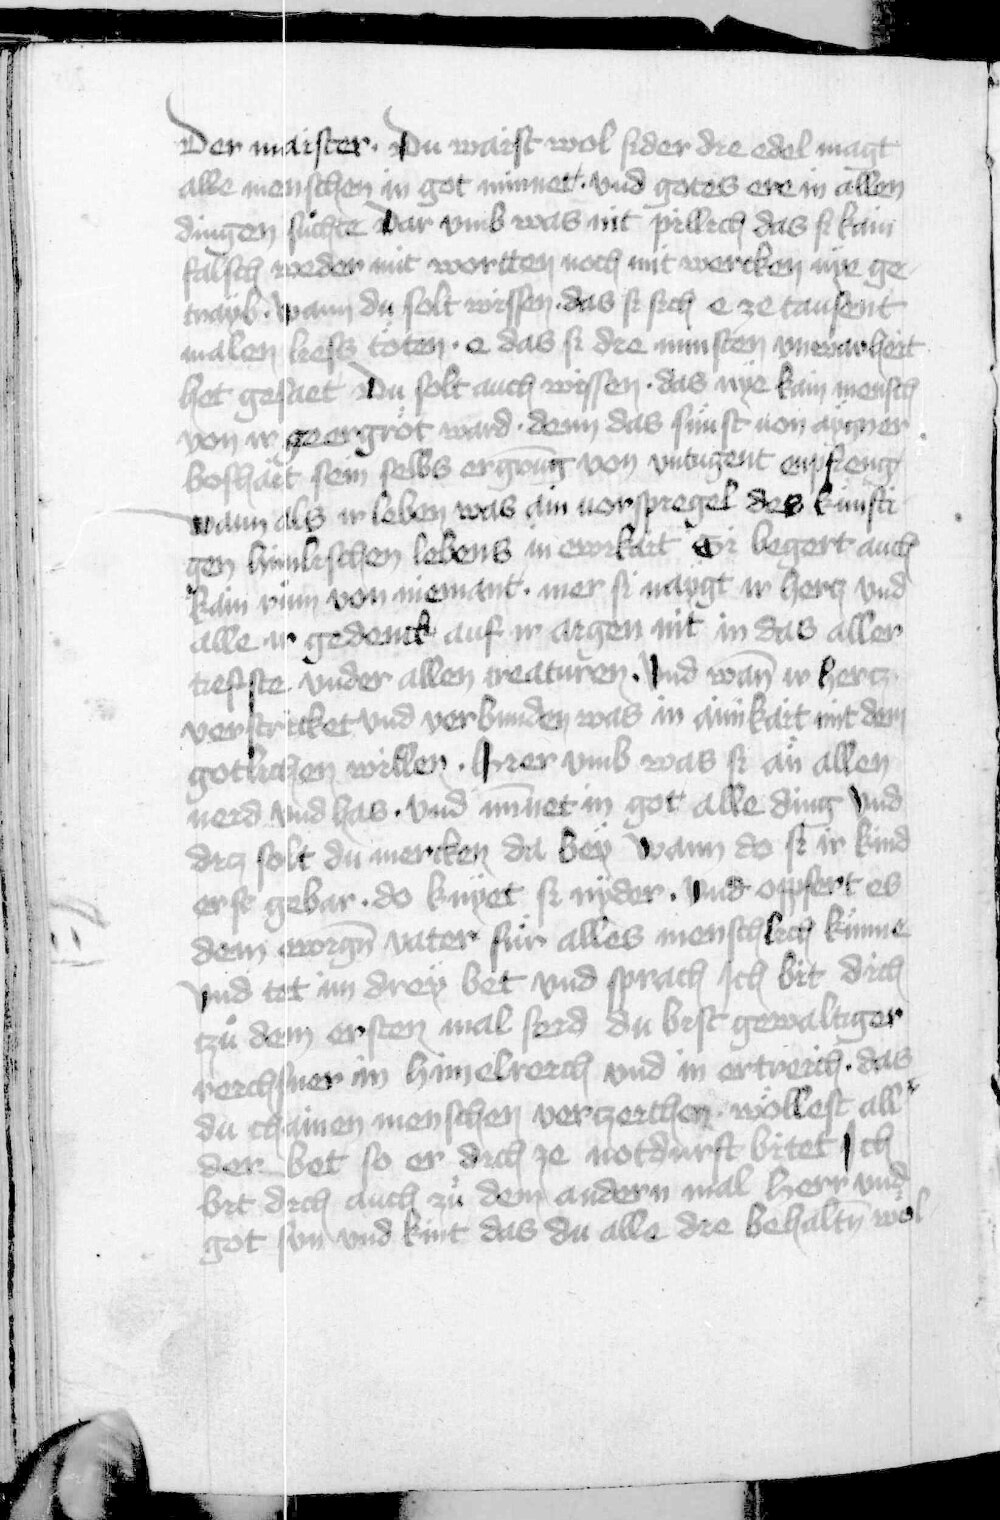 Der maister. Du waist wol sider die edel magt
alle menschen in got minnet. vnd gotes ere in allen
dingen suͦchte Dar vmb was nit pillich das si kain
falsch weder mit wortten noch mit wercken nye ge
trayb. Wann du solt wissen. das si sich e ze tausent
malen liess töten. e das si die minsten vnwarheit
het gesaet Du solt auch wissen. das nye kain mensch
von ir geergröt ward. denn das sunst von aygner
boshait sein selbs ergrūg von vntugent enpfieng
wann als ir leben was ain vorspiegel des künfti
gen himlischen lebens in ewikait Si begert auch
kain rum von niemant. mer si naygt ir hercz vnd
alle ir gedenck auf ir aigen nit in das aller
tiefste vnder allen creaturen. Vnd wañ ir hercz
verstricket vnd verbunden was in ainikait mit dem
gotlichen willen. Hier vmb was si an allen
neid vnd has. vnd miñet in got alle ding Vnd
dicz solt du mercken da bey Wann do si ir kind
erst gebar. do knyet si nyder. Vnd oppfert es
dem ewign̄ vater für alles menschlich künne
Vnd tet im drey bet vnd sprach Ich bit dich
tzuͦ dem ersten mal seid du bist gewaltiger
reichsner in himelreich vnd in ertreich. das
du chainen menschen verczeichen. wöllest all
der bet so er dich ze notdurft bitet Ich
bit dich auch zuͦ dem andern mal Herr vnd
got sun vnd kint das du alle die behaltn̄ wöl